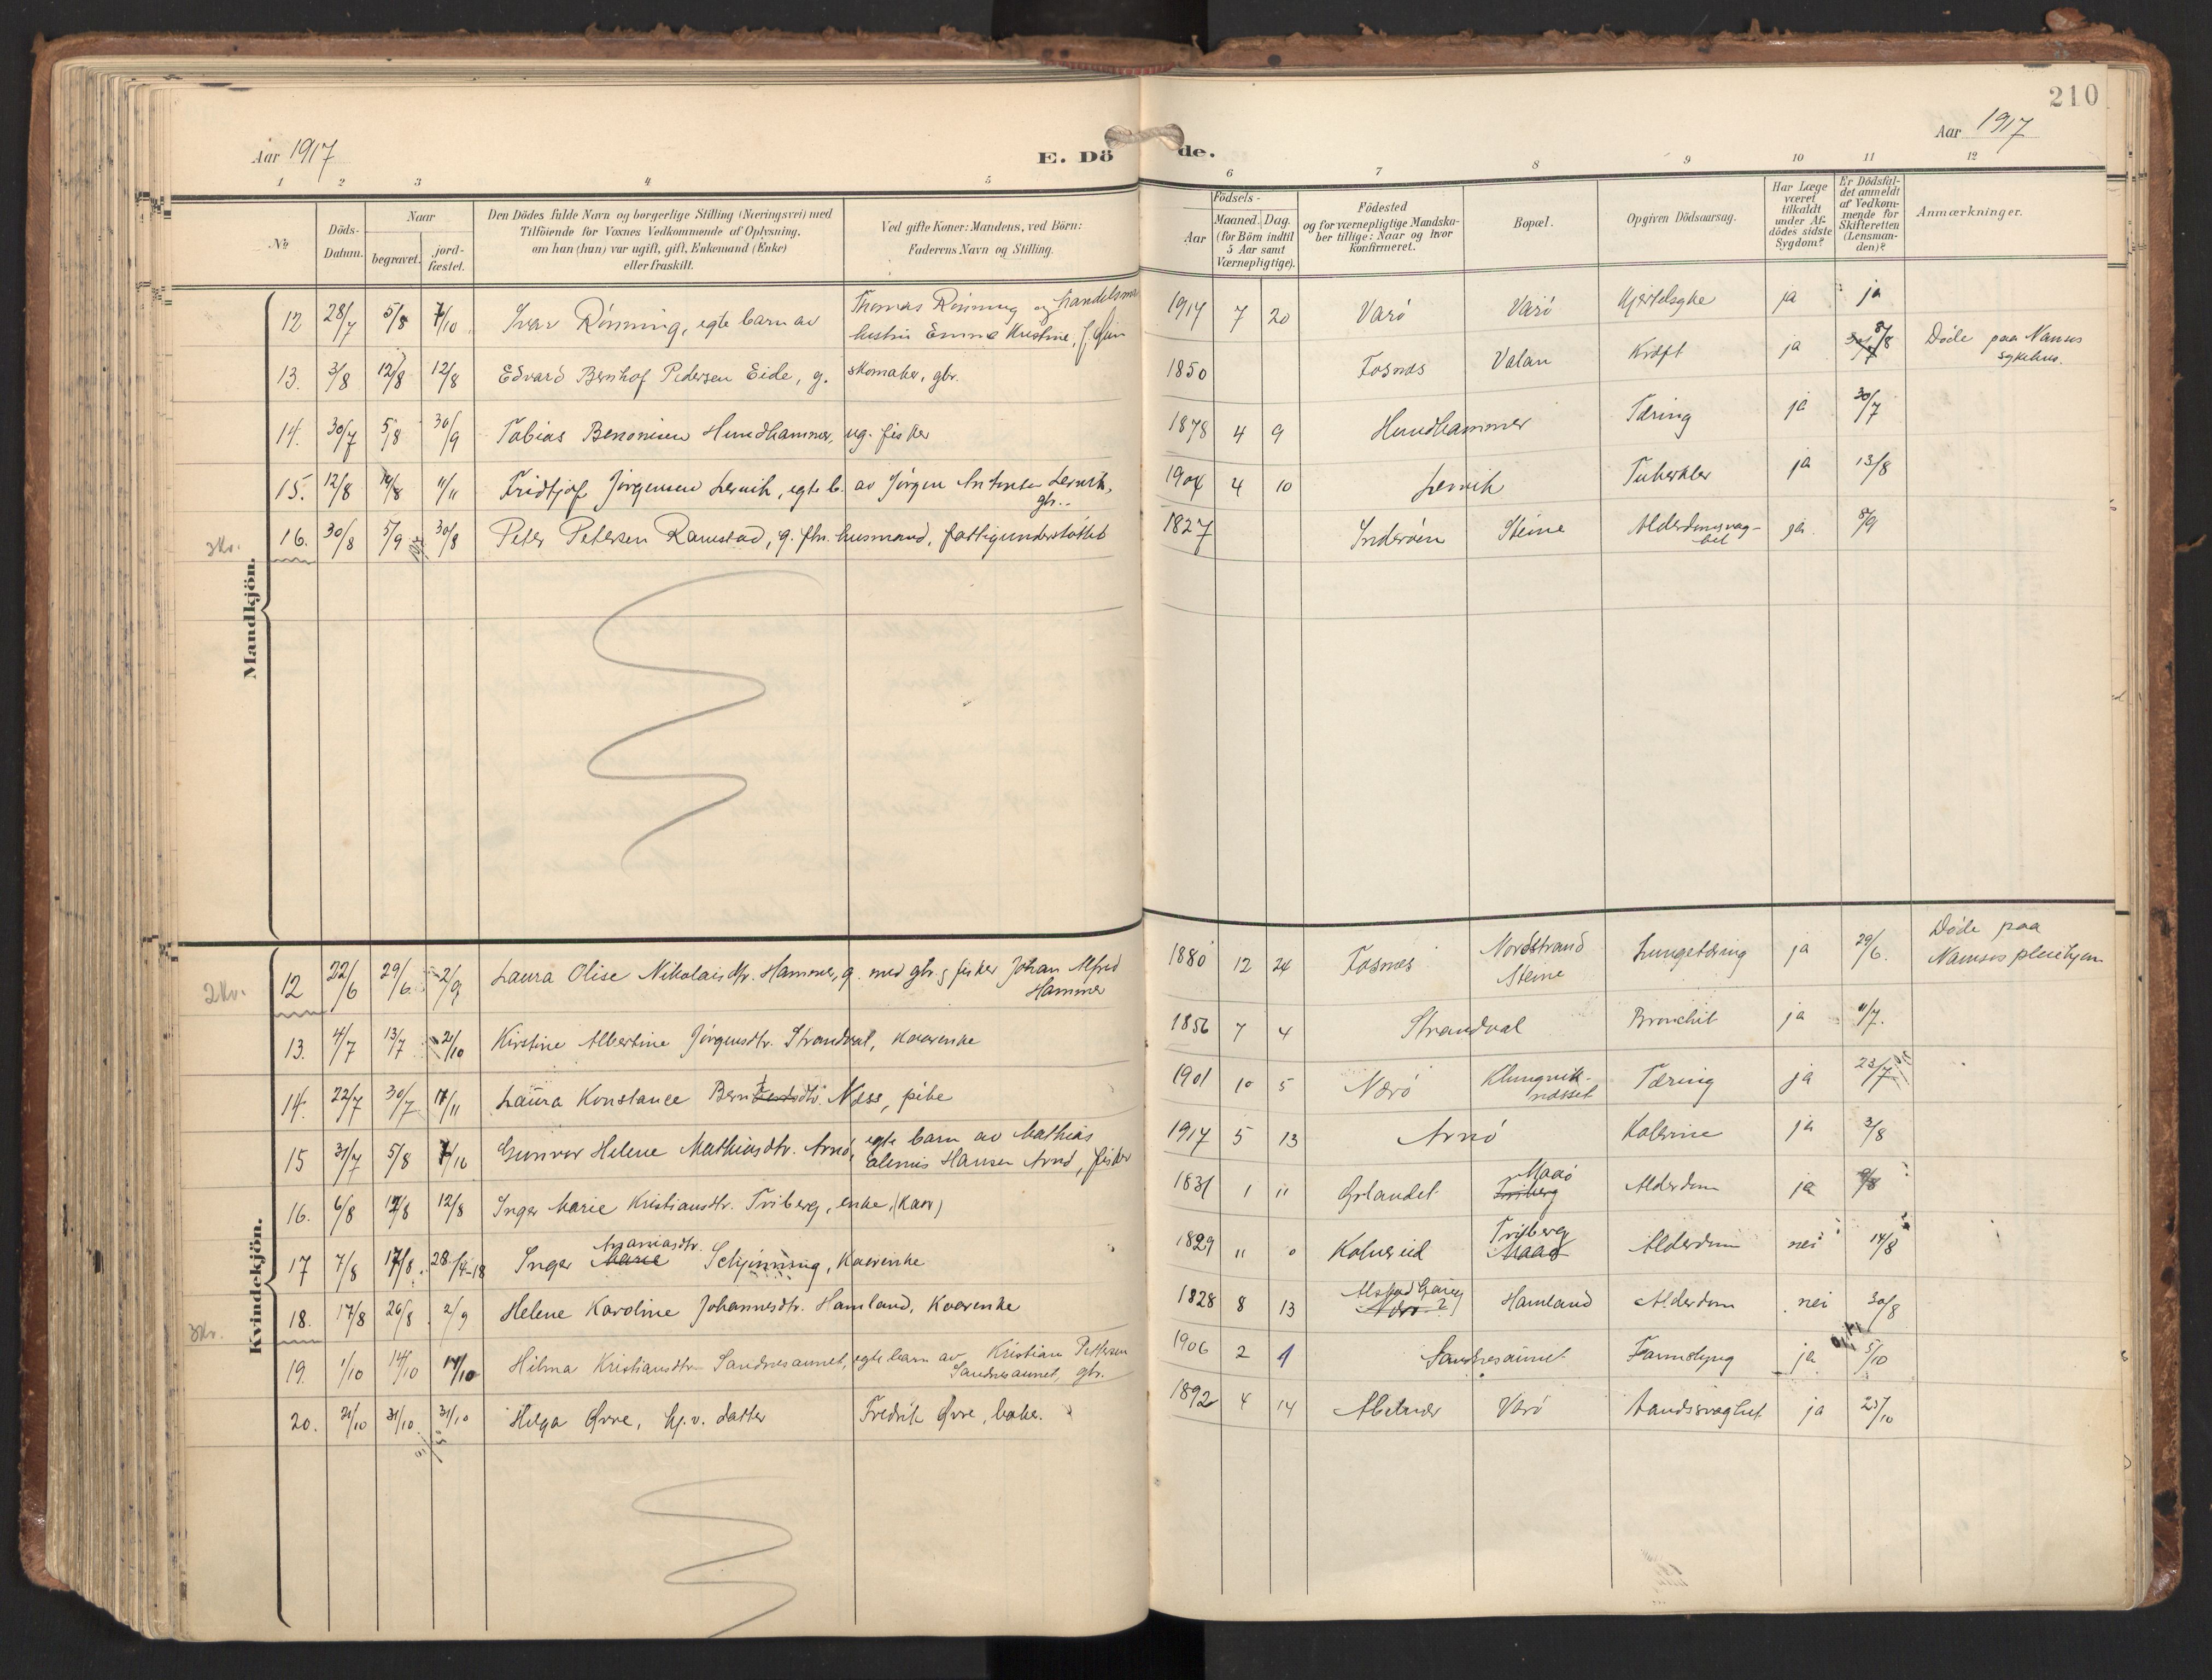 210
Aar 1917
E. Dö de.
Aar 1917
1 2 3 4 5 6 7 8 9 10 11 12
№
Döds-Datum.
Naar
begravet.
jord-fæstet.
Den Dödes fulde Navn og borgerlige Stilling (Næringsvei) med
Tilföiende for Voxnes Vedkommende af Oplysning,
om han (hun) var ugift, gift, Enkemand (Enke)
eller fraskilt.
Ved gifte Koner: Mandens, ved Börn:
Faderens Navn og Stilling.
Födsels-
Aar
Maaned. Dag.
(for Börn indtil
5 Aar samt
Værnepligtige).
Födested
og for værnepligtige Mandska-
ber tillige: Naar og hvor
Konfirmeret.
Bopæl.
Opgiven Dödsaarsag.
Har Læge
været
tilkaldt
under Af-
dödes sidste
Sygdom?
Er Dödsfal-
det anmeldt
af Vedkom-
mende for
Skifteretten
(Lensman-
den)?
Anmærkninger.
Mandkjön.
12 28/7 5/8 7/10 Ivar Rönning, egte barn av Thomas Rönning og handelsma
hustru Emma Kristine, f. 1917 7 20 Varö Varö Hjertesyke ja ja
13. 3/8 12/8 12/8 Edvard Bernhof Pedersen Eide, g. skomaker, gbr. 1850 Fosnæs Valan Kræft ja 8/8 Døde paa Namsos
sykehus.
14. 30/7 5/8 30/9 Tobias Benonisen Hundhammer, ug. fisker 1878 4 9 Hundhammer Tæring ja 30/7
15. 12/8 19/8 11/11 Fridtjof Jörgensen Lervik, egte b. av Jörgen Antonsen Lervik,
gbr. 1904 4 10 Lervik Tuberkler ja 13/8
3 Kr. 16. 30/8 5/9 30/8 Peter Petersen Ramstad, g. fhv. husmand, fattigunderstöttet 1827 Inderöen Steine Alderdomssvag-
het ja 8/9
Kvindekjön.
2 Kr. 12 22/6 29/6 2/9 Laura Olise Nikolaisdtr. Hammer, g. med gbr. g fisker Johan Alfred
Hammer 1880 12 24 Fosnæs Nordstrand
Steine Lungetæring ja 29/6. Døde paa
Namsos pleiehjem
13. 4/7 13/7 21/10 Kirstine Albertine Jörgensdtr. Strandval, kaarenke 1856 7 4 Strandval Bronchit ja 11/7.
14. 22/7 30/7 11/11 Laura Konstance dtr. Næss, pike 1901 10 5 Nærö Klungvik-
næsset Tæring ja 23/7
15 31/7 5/8 7/10 Gunvor Helene Mathiasdtr. Arnö, egte barn av Mathias
Hansen Arnö, fisker 1917 5 13 Arnö Kolerine ja 3/8
16. 6/8 12/8 12/8 Inger Marie Kristiansdtr. Friberg, enke, (kaar) 1831 1 11 Grlandet Maaö
Friberg Alderdom ja 9/8
17 7/8 17/8 28/4-18 Inger Marie Ananiasdtr. Schjinning, Kaarenke 1829 11 0 Kolvereid Friberg
Maaö Alderdom nei 14/8
3 Kr. 18. 17/8 26/8 2/9 Helene Karoline Johannesdtr. Hamland, Kaarenke 1828 8 13 Nærö ? Hamland Alderdom nei 30/8
19. 1/10 14/10 14/10 Hilma Kristiansdtr. Sandnesaunet, egte barn av Kristian Pettersen
Sandnesaunet, gbr. 1906 2 1 Sandnesaunet Tarmslyng ja 5/10
20. 21/10 31/10 31/10 Helga Övre, hj.v. datter Fredrik Övre, baker. 1892 4 14 Abelvær Varö Aandssvaghet ja 25/10